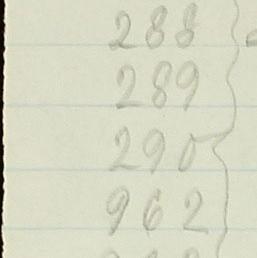 288
289
290
962